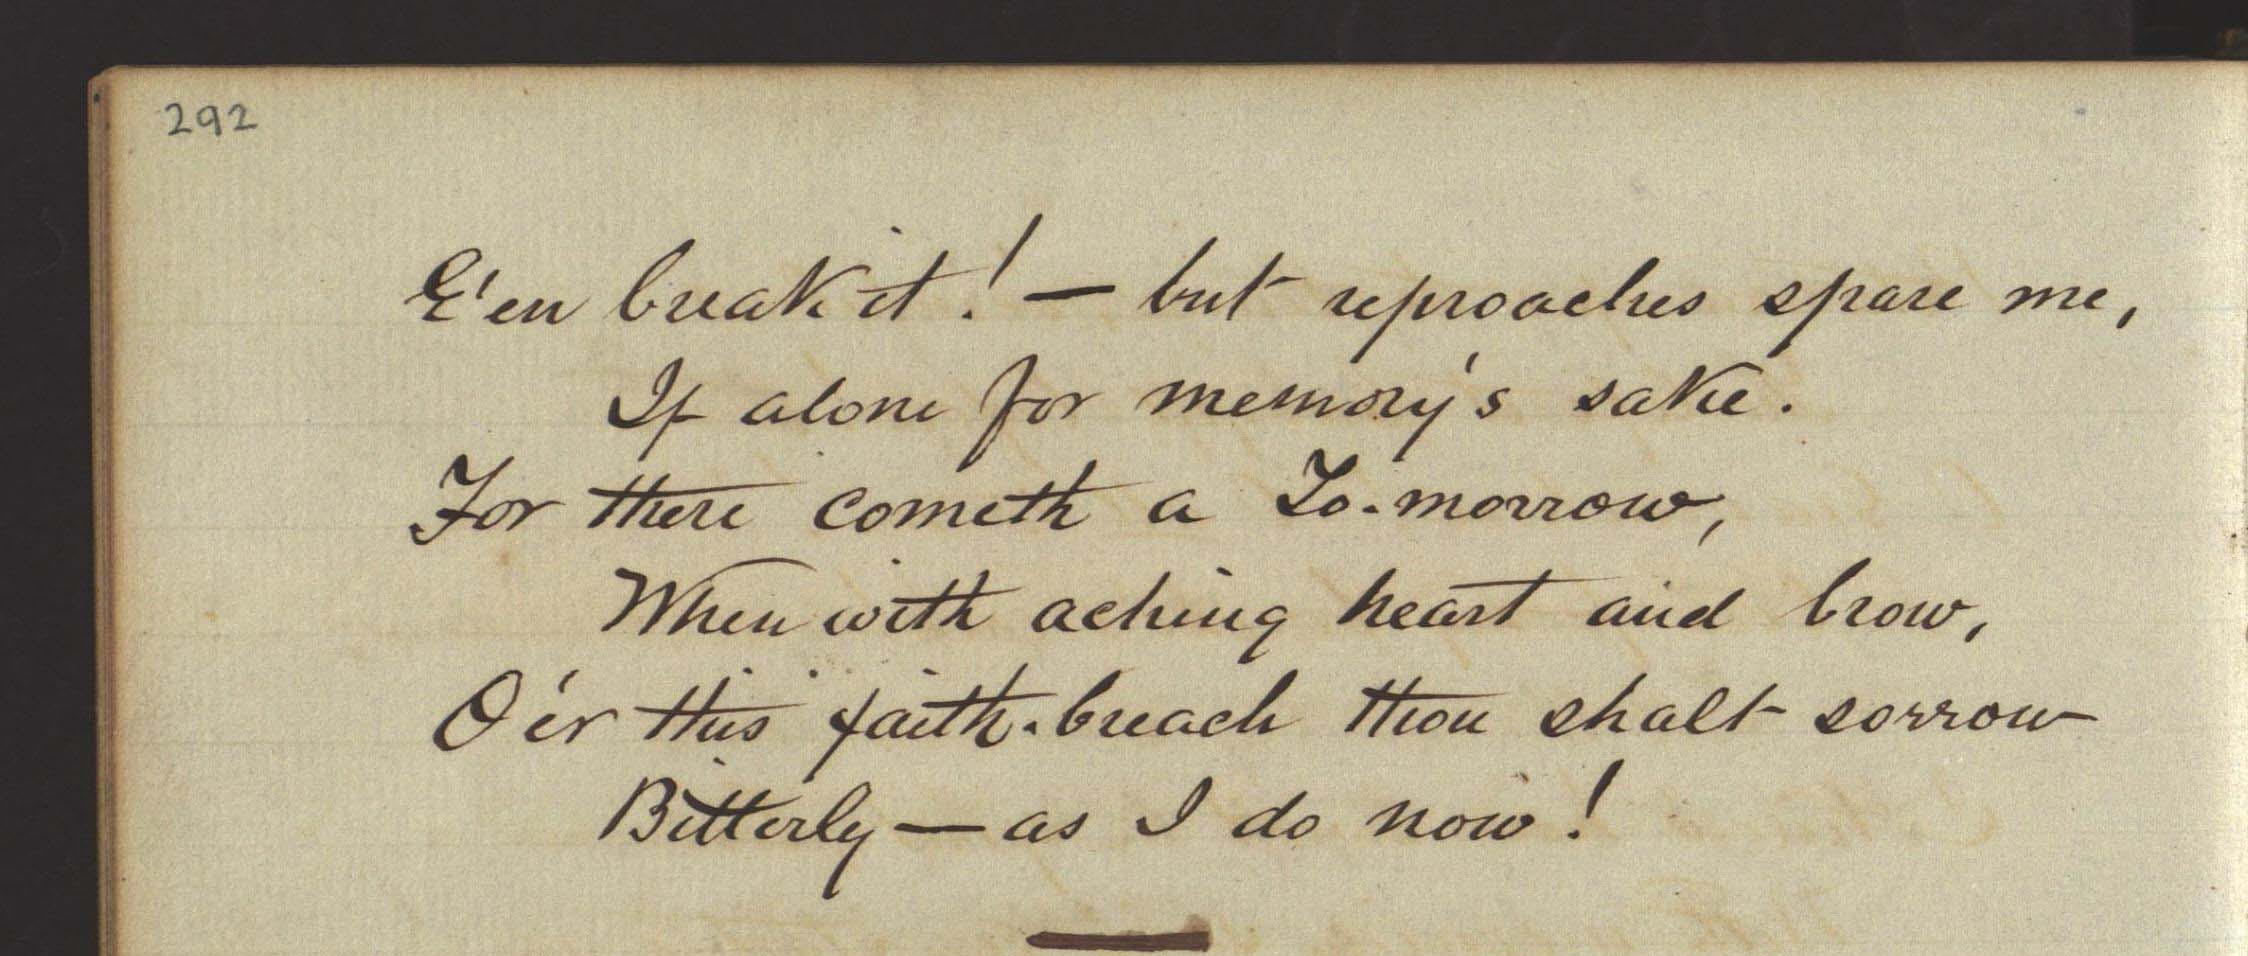 292
E'en break it! — but reproaches spare me,
If alone for memory's sake.
For there cometh a To-morrow,
When with aching heart and brow,
O'er this faith-breach thou shalt sorrow
Bitterly — as I do now!